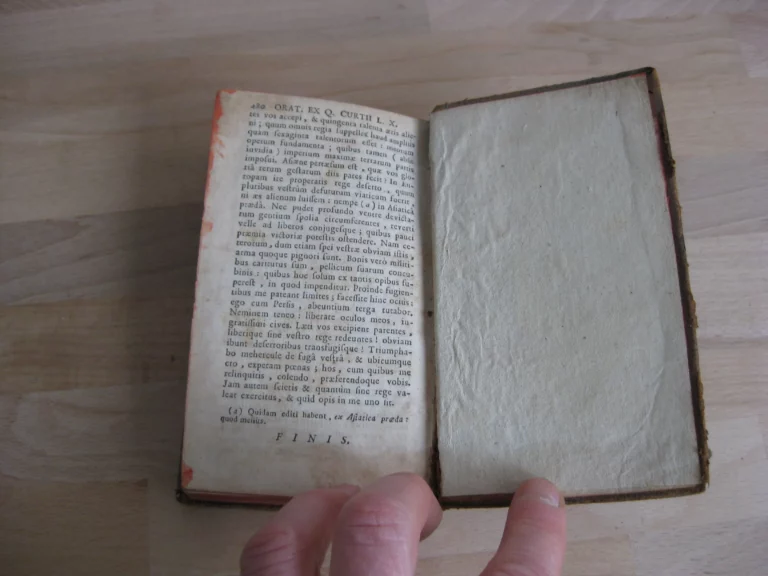 480 ORAT. EX Q. CURTII L. X.
res vos accepi, & quingenta talenta æris alie-
ni; quum omnis regia supellex haud amplius
quam sexaginta talentorum esset: meorum
operum fundamenta; quibus tamen (absit
invidia) imperium maximæ terrarum partis
imposui. Asiæne pertæsum est, quæ vos glo-
riâ rerum gestarum diis pares fecit? In Eu-
ropam ire properatis rege deserto, quum
pluribus vestrûm defuturum viaticum fuerit,
ni æs alienum luissem: nempe (a) in Asiaticâ
prædâ. Nec pudet profundo ventre devicta-
rum gentium spolia circumferentes, reverti
velle ad liberos conjugesque; quibus pauci
præmia victoriæ potestis ostendere. Nam ce-
terorum, dum etiam spei vestræ obviam istis,
arma quoque pignori sunt. Bonis verò militi-
bus cariturus sum, pellicum suarum concu-
binis: quibus hoc solum ex tantis opibus su-
perest, in quod impenditur. Proinde fugien-
tibus me pateant limites; facessite hinc ocius:
ego cum Persis, abeuntium terga tutabor.
Neminem teneo: liberate oculos meos, in-
gratissimi cives. Læti vos excipient parentes,
liberique sine vestro rege redeuntes! obviam
ibunt desertoribus transfugisque! Triumpha-
bo mehercule de fugâ vestrâ, & ubicumque
ero, expetam pœnas; hos, cum quibus me
relinquitis, colendo, præferendoque vobis.
Jam autem scietis & quantùm sine rege va-
leat exercitus, & quid opis in me uno sit.
(a) Quidam editi habent, ex Asiatica præda:
quod melius.
FINIS.